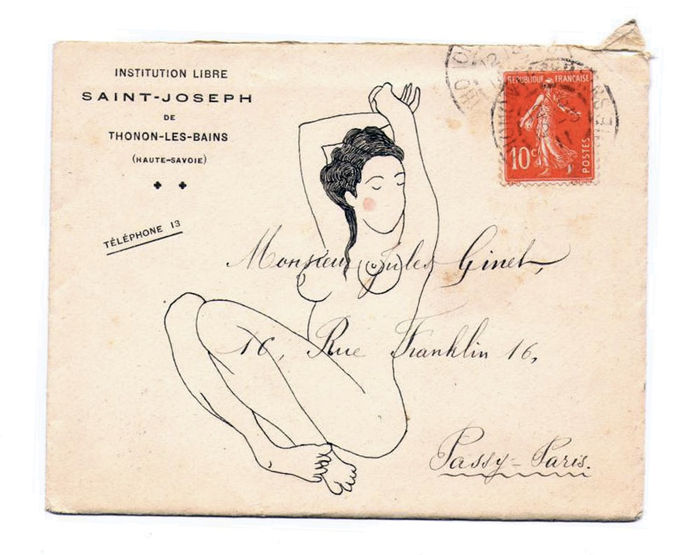 INSTITUTION LIBRE
SAINT-JOSEPH
DE
THONON-LES-BAINS
(HAUTE-SAVOIE)
TÉLÉPHONE 13
REPUBLIQUE FRANÇAISE
10c
POSTES
Monsieur Jules Ginet,
16, Rue Franklin 16,
Passy-Paris.